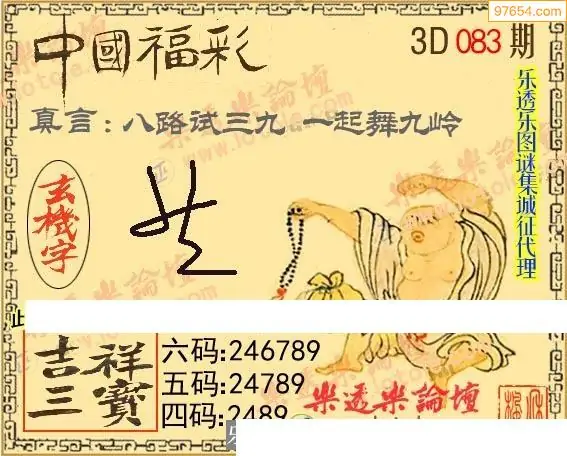 97654.com
中國福彩
3D 083 期
真言：八路试三九 一起舞九岭
乐透乐图谜集城征代理
玄機字
吉祥三寶
六码:246789
五码:24789
四码:2489
樂透樂論壇